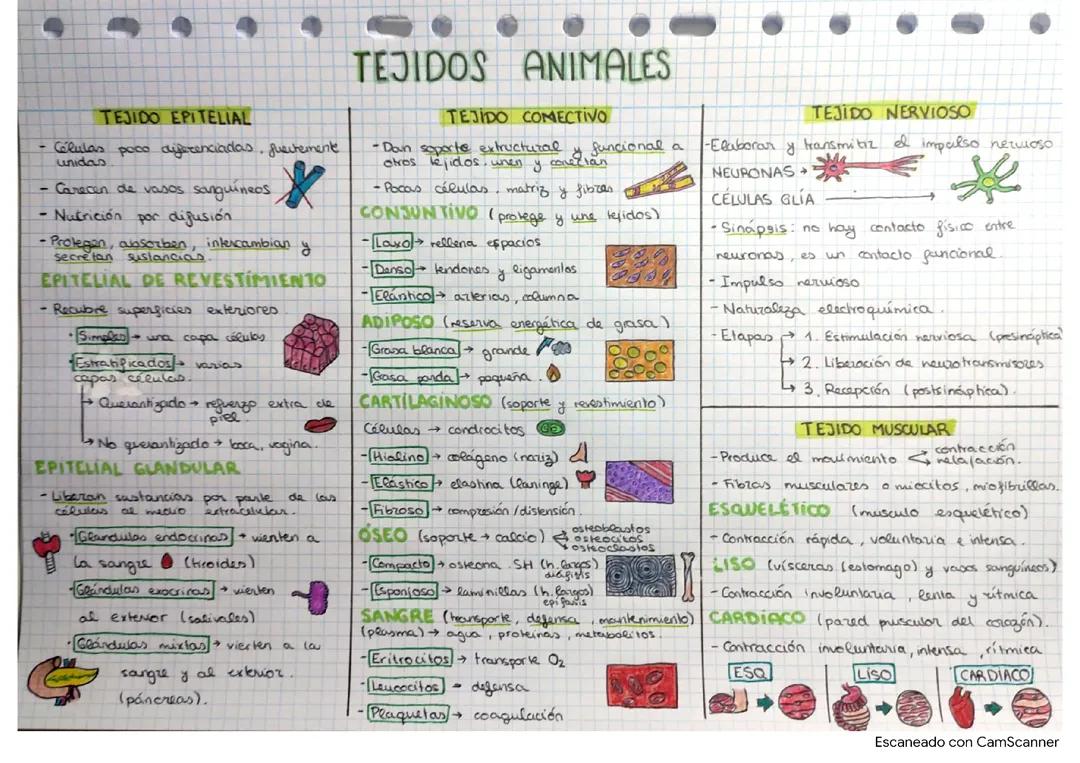 TEJIDOS ANIMALES
TEJIDO EPITELIAL
- Células poco diferenciadas, fuertemente
unidas.
- Carecen de vasos sanguíneos
- Nutrición por difusión
- Protegen, absorben, intercambian y
secretan sustancias.
EPITELIAL DE REVESTIMIENTO
- Recubre superficies exteriores.
· Simples → una capa células
· Estratificados → varias
capas células.
→ Queratinizado → refuerzo extra de
piel.
→ No queratinizado → boca, vagina.
EPITELIAL GLANDULAR
- Liberan sustancias por parte de las
células al medio extracelular.
· Glandulas endocrinas → vierten a
la sangre (tiroides)
· Glándulas exocrinas → vierten
al exterior (salivales)
· Glándulas mixtas → vierten a la
sangre y al exterior.
(páncreas).
TEJIDO CONECTIVO
- Dan soporte estructural y funcional a
otros tejidos, unen y conectan
- Pocas células, matriz y fibras
CONJUNTIVO (protege y une tejidos)
- Laxo → rellena espacios
- Denso → tendones y ligamentos
- Elástico → arterias, columna
ADIPOSO (reserva energética de grasa)
- Grasa blanca → grande
- Gasa parda → pequeña.
CARTILAGINOSO (soporte y revestimiento)
Células → condrocitos
- Hialino → colágeno (nariz)
- Elástico → elastina (laringe)
- Fibroso → compresión/distensión.
ÓSEO (soporte → calcio) osteoblastos
osteocitos
osteoclastos
- Compacto → osteona. SH (h. largos)
diáfisis
- Esponjoso → laminillas (h. largos)
epífisis
SANGRE (transporte, defensa, mantenimiento)
(plasma) → agua, proteínas, metabolitos.
- Eritrocitos → transporte O₂
- Leucocitos → defensa
- Plaquetas → coagulación
TEJIDO NERVIOSO
- Elaborar y transmitir el impulso nervioso
NEURONAS →
CÉLULAS GLÍA →
- Sinápsis: no hay contacto físico entre
neuronas, es un contacto funcional.
- Impulso nervioso
- Naturaleza electroquímica.
- Etapas → 1. Estimulación nerviosa (presináptica
→ 2. Liberación de neurotransmisores
→ 3. Recepción (postsináptica).
TEJIDO MUSCULAR
- Produce el movimiento contracción
relajación.
- Fibras musculares o miocitos, miofibrillas.
ESQUELÉTICO (musculo esquelético)
- Contracción rápida, voluntaria e intensa.
LISO (vísceras (estomago) y vasos sanguíneos)
- Contracción involuntaria, lenta y rítmica
CARDÍACO (pared muscular del corazón).
- Contracción involuntaria, intensa, rítmica
ESQ LISO CARDÍACO
Escaneado con CamScanner